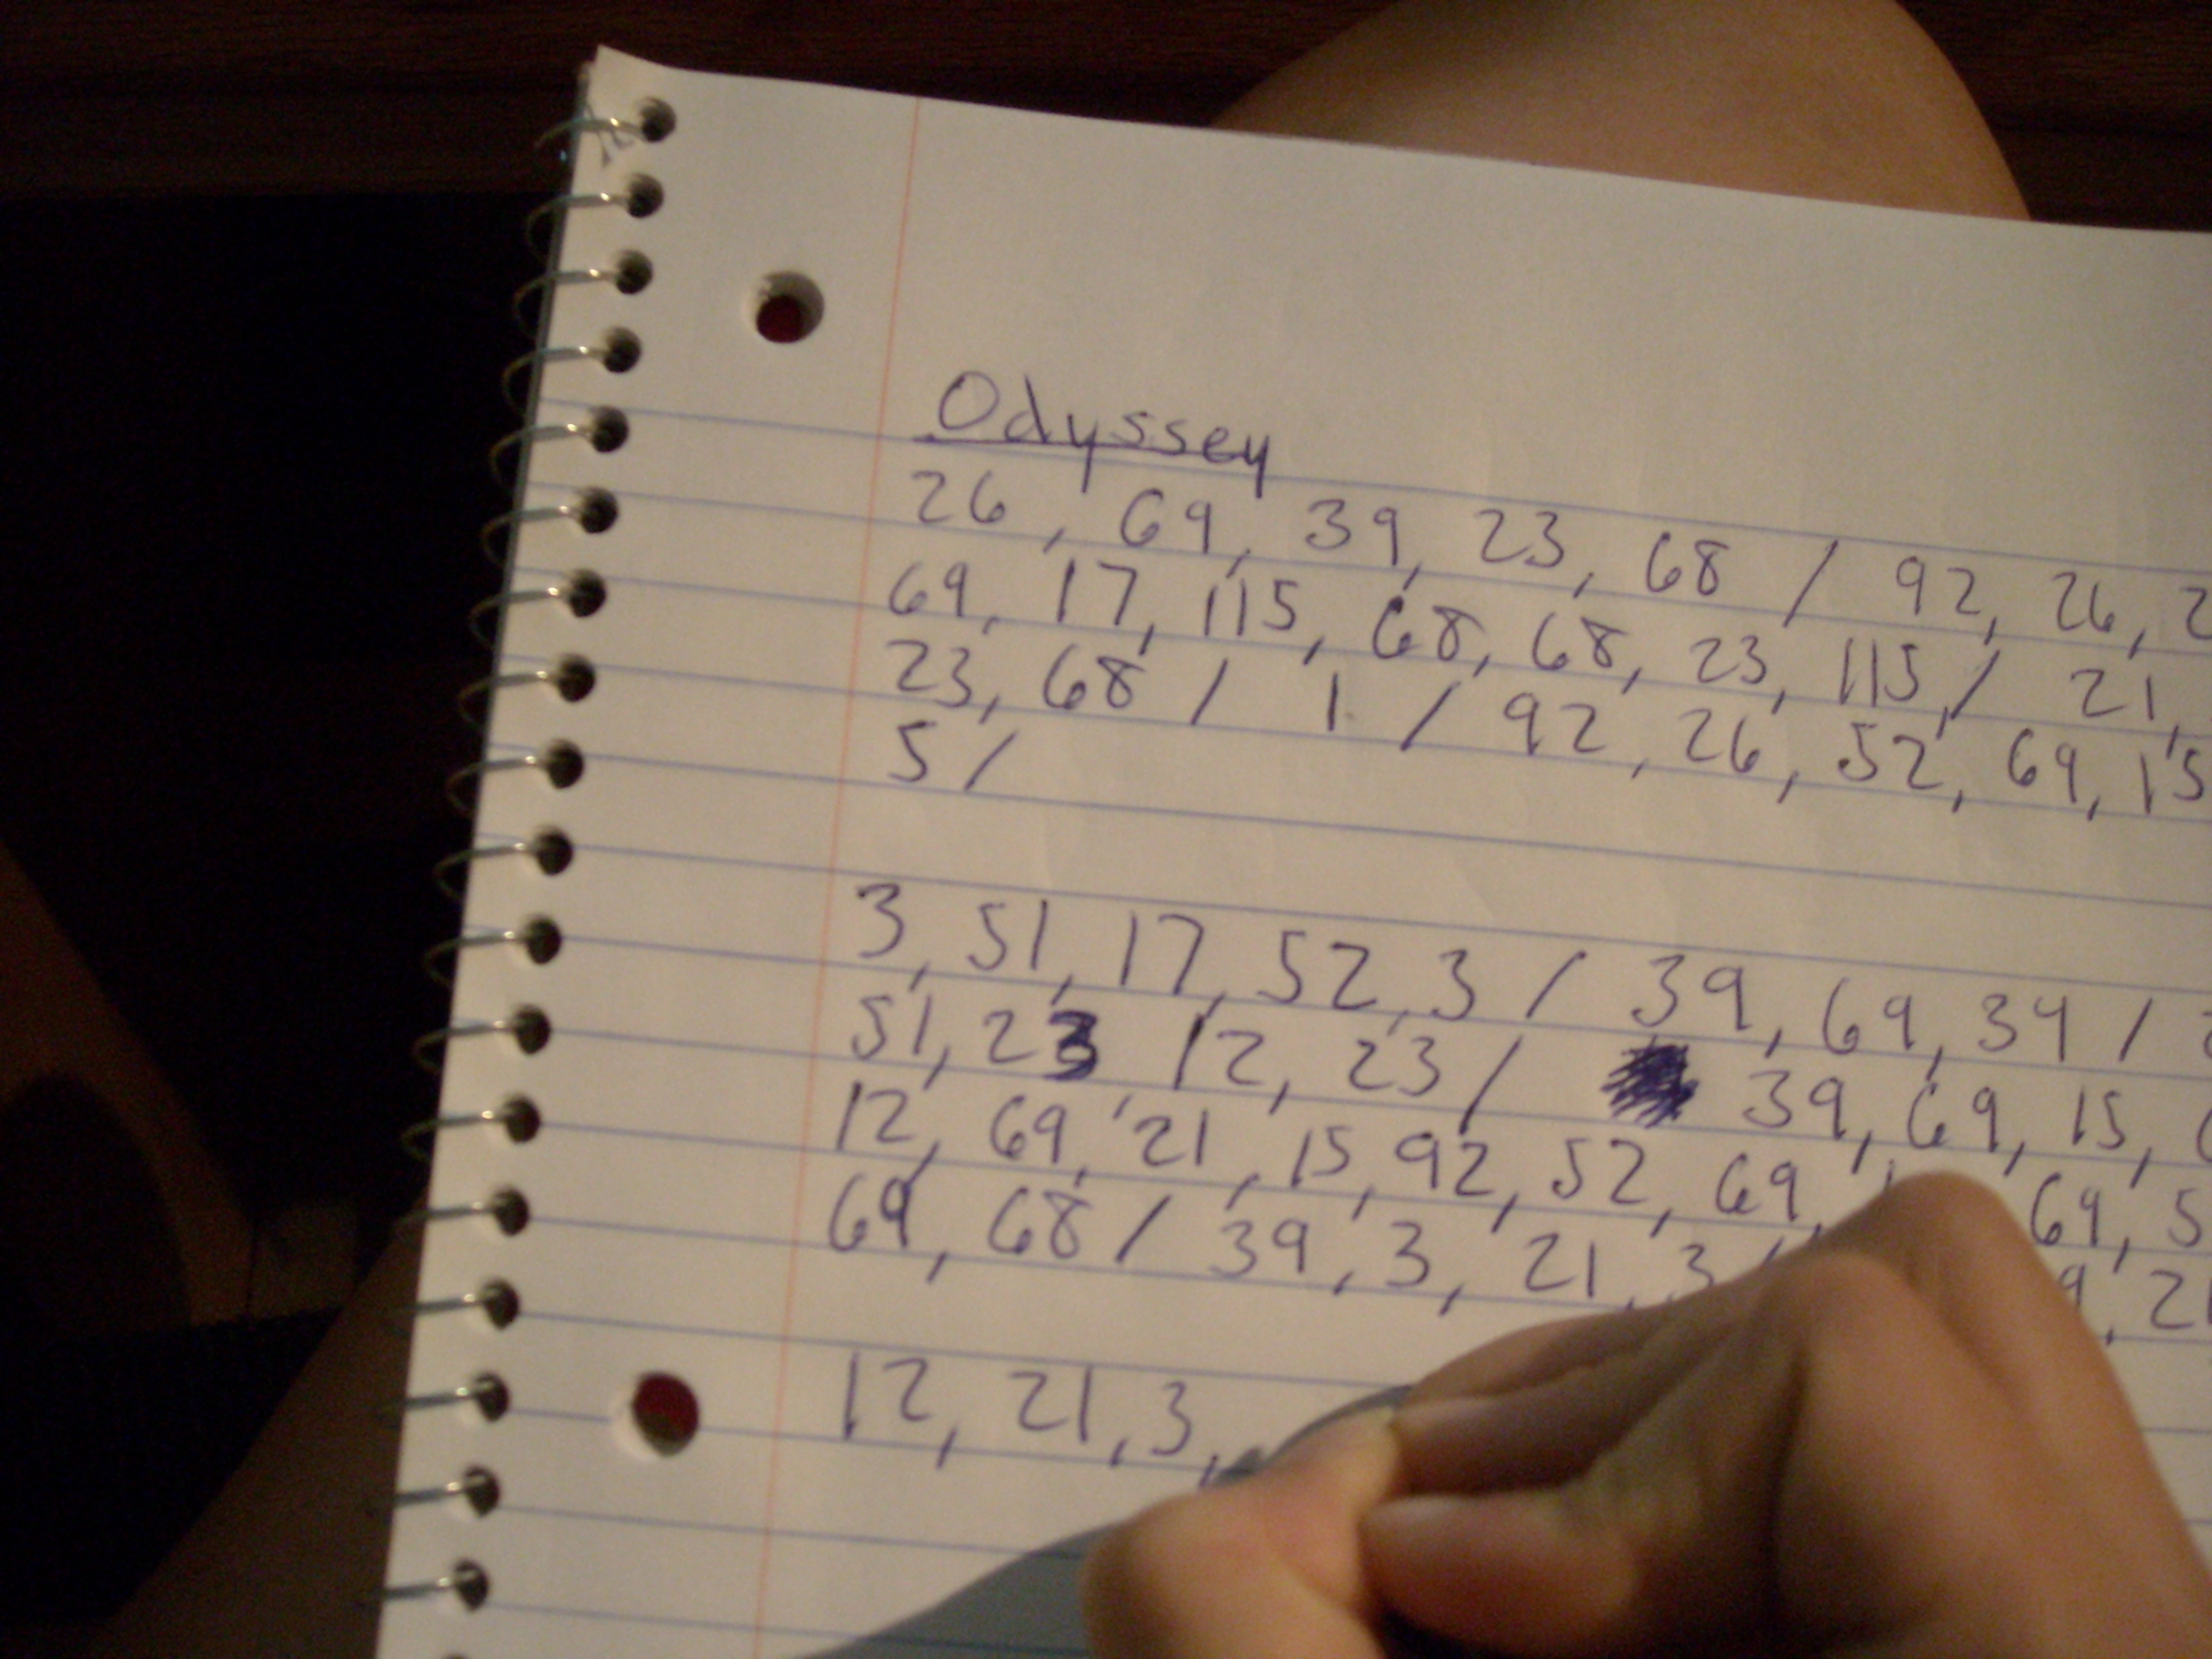 Odyssey
26, 69, 39, 23, 68 / 92, 26, 2
69, 17, 115, 68, 68, 23, 115 / 21,
23, 68 / 1 / 92, 26, 52, 69, 15
5 /
3, 51, 17, 52, 3 / 39, 69, 34 /
51, 23, 12, 23 / 39, 69, 15,
12, 69, 21, 15, 92, 52, 69, 69, 5
69, 68 / 39, 3, 21, 3 / 9, 21
12, 21, 3,